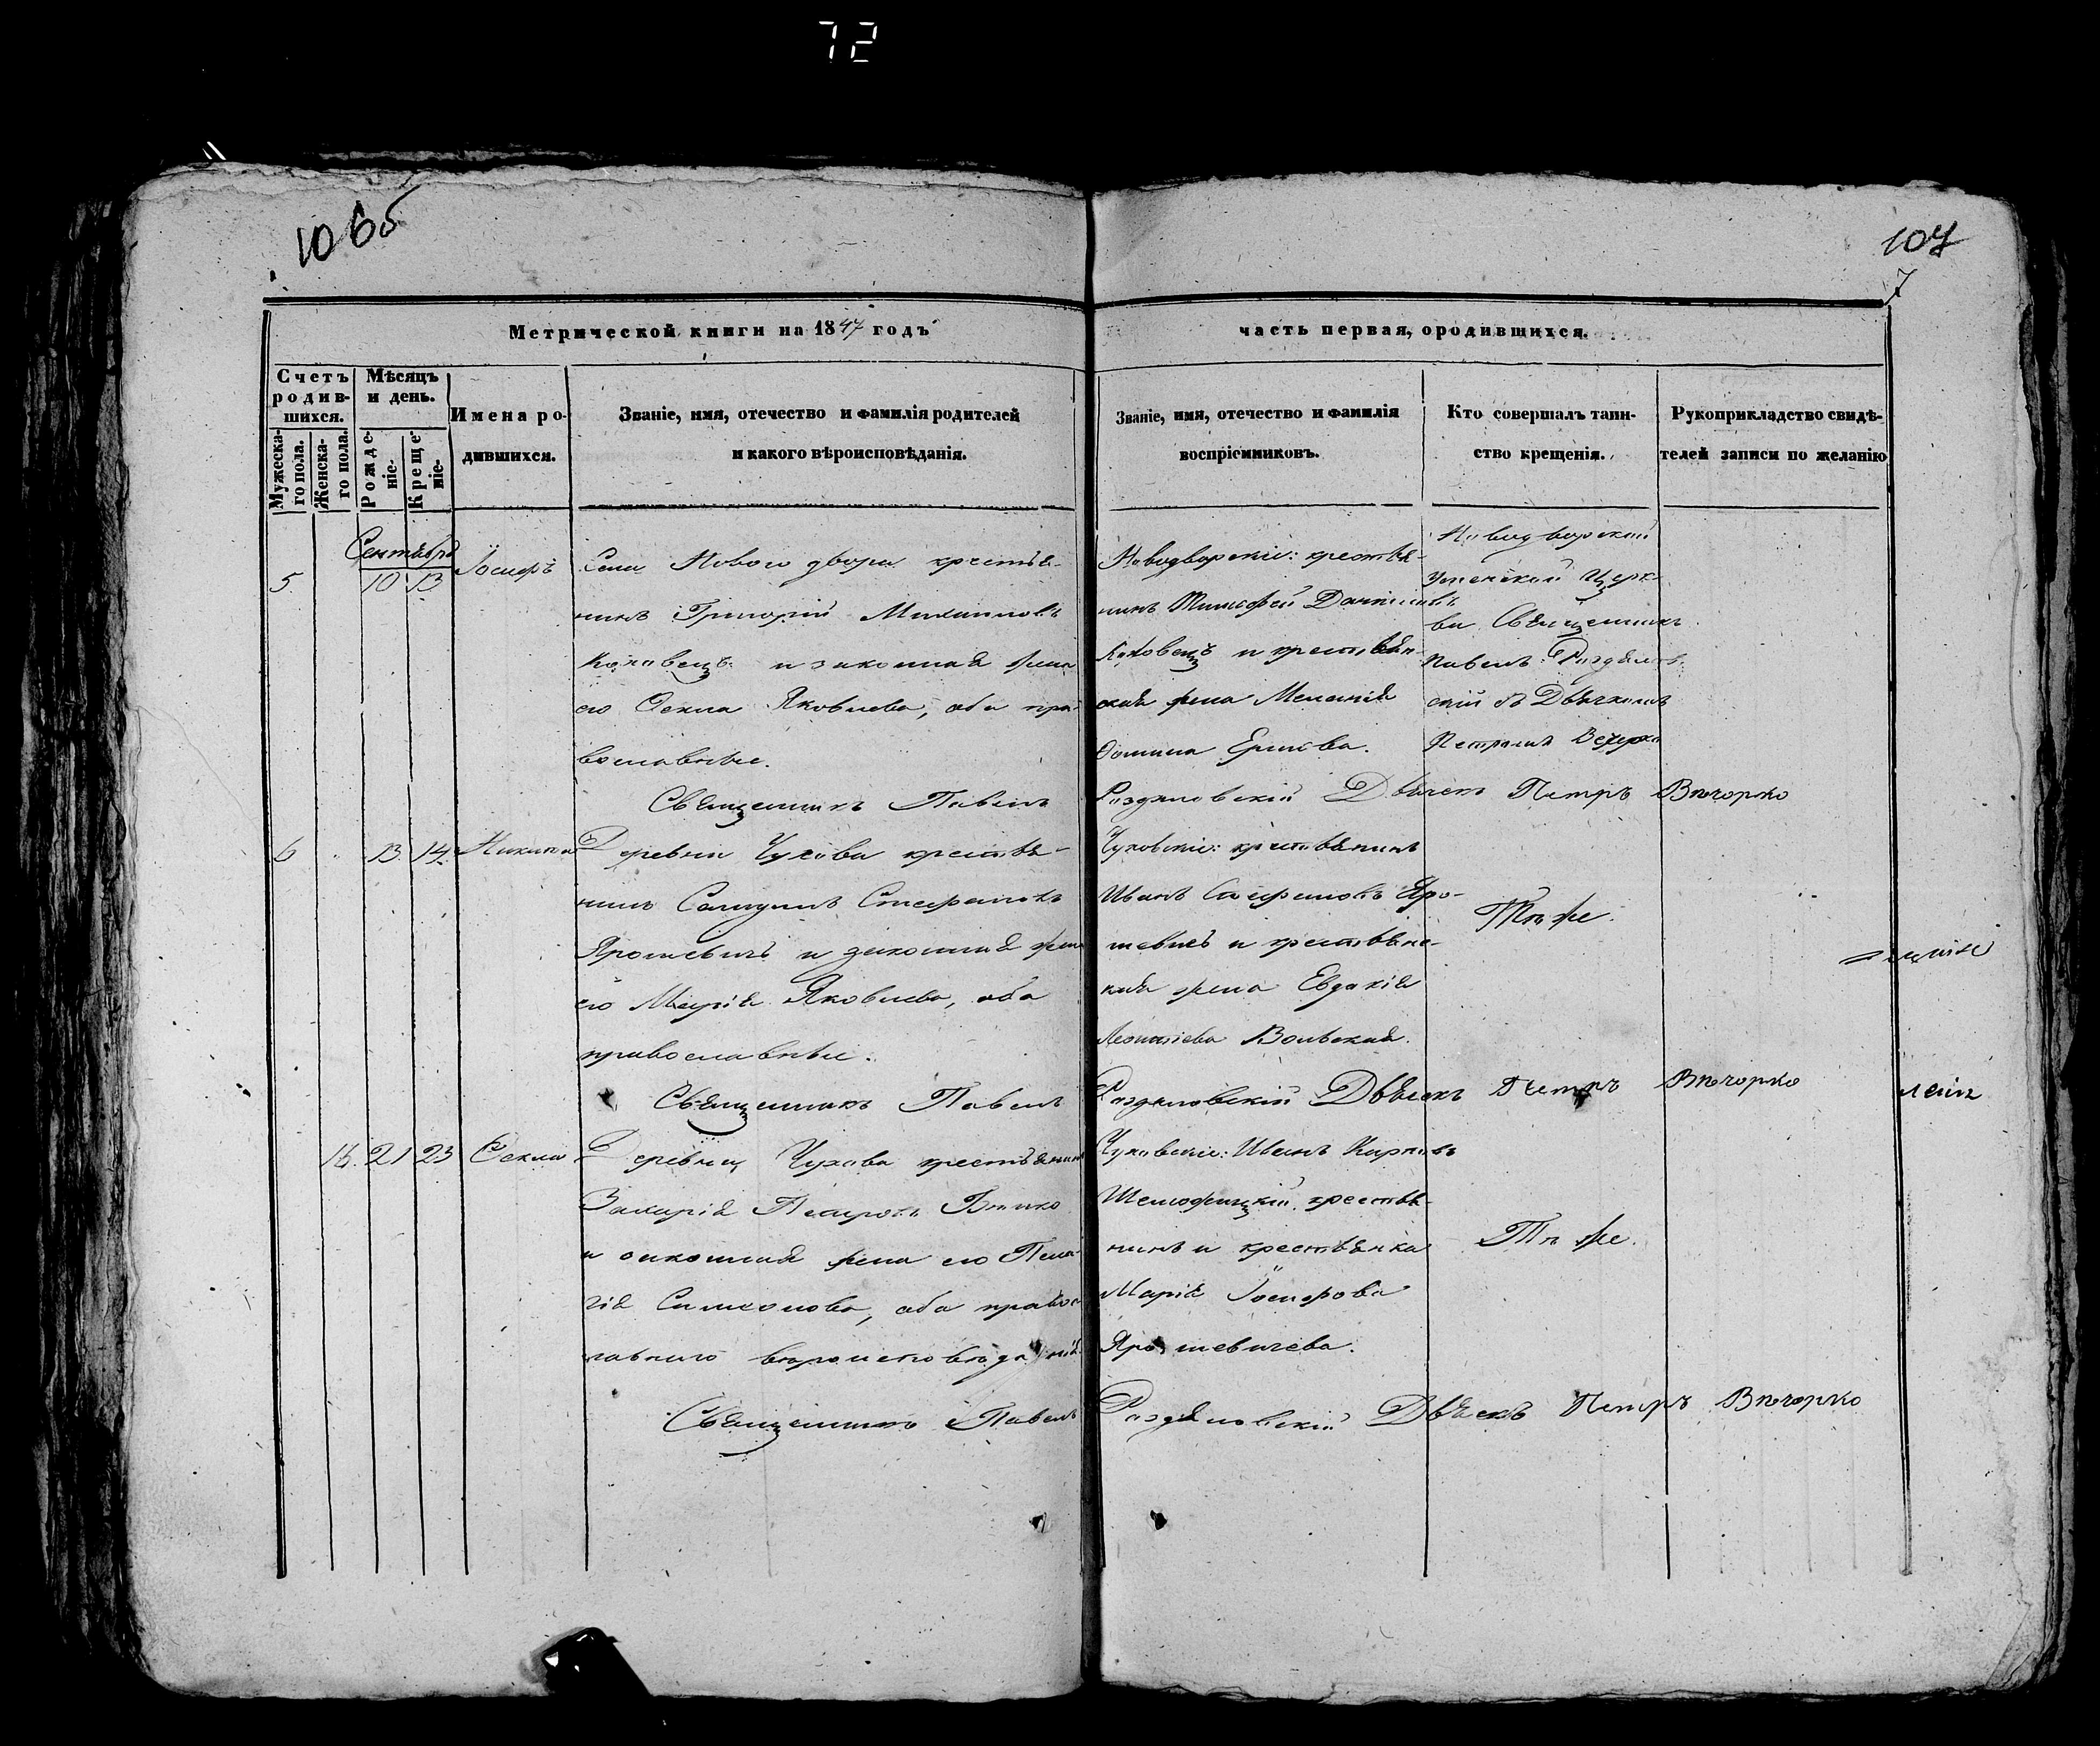 72
106об
107
7
Метрической книги на 1847 годъ
часть первая, ородившихся.
Счетъ родив-
шихся.
Мужеска-
го пола.
Женска-
го пола.
Мѣсяцъ
и день.
Рожде-
ніе.
Креще-
ніе.
Имена ро-
дившихся.
Званіе, имя, отечество и фамилія родителей
и какого вѣроисповѣданія.
Званіе, имя, отечество и фамилія
воспріемниковъ.
Кто совершалъ таин-
ство крещенія.
Рукоприкладство свидѣ-
телей записи по желанію
Сентябрь
5 10 13 Іосифъ
Села Нового двора крестья-
нинъ Григорій Михаиловъ
и законная жена
его Ѳекла Яковлева, оба пра-
вославные.
Новодворскіе: крестья-
нинъ Тимофей Даниловъ
и крестьян-
ская жена Меланія
Ермова.
Новодворской
Успенской Церк-
ви Священникъ
Павелъ Роздяловс-
кій съ Дьячкомъ
Петромъ Вечерко
Священникъ Павелъ Роздяловскій Дьячекъ Петръ Вечорко
6 13 14 Никита
Деревни Чухова крестья-
нинъ Стефановъ
Ярошевичъ и законная жена
его Марія Яковлева, оба
православные.
Чуховскіе: крестьянинъ
Иванъ Стефановъ Яро-
шевичъ и крестьянс-
кая жена Евдокія
Леонтіева Вольская.
Тѣ же.
Священникъ Павелъ Роздяловскій Дьячекъ Петръ Вечорко
21 23 Ѳекла
Деревни Чухова крестьянинъ
Захарія Петровъ
и законная жена его Пела-
гія Симеонова, оба правос-
лавного вѣроисповѣданія
Чуховскіе: Иванъ Карповъ
крестья-
нинъ и крестьянка
Марія Іосифова
Ярошевичева.
Тѣ же.
Священникъ Павелъ Роздяловскій Дьячекъ Петръ Вечорко